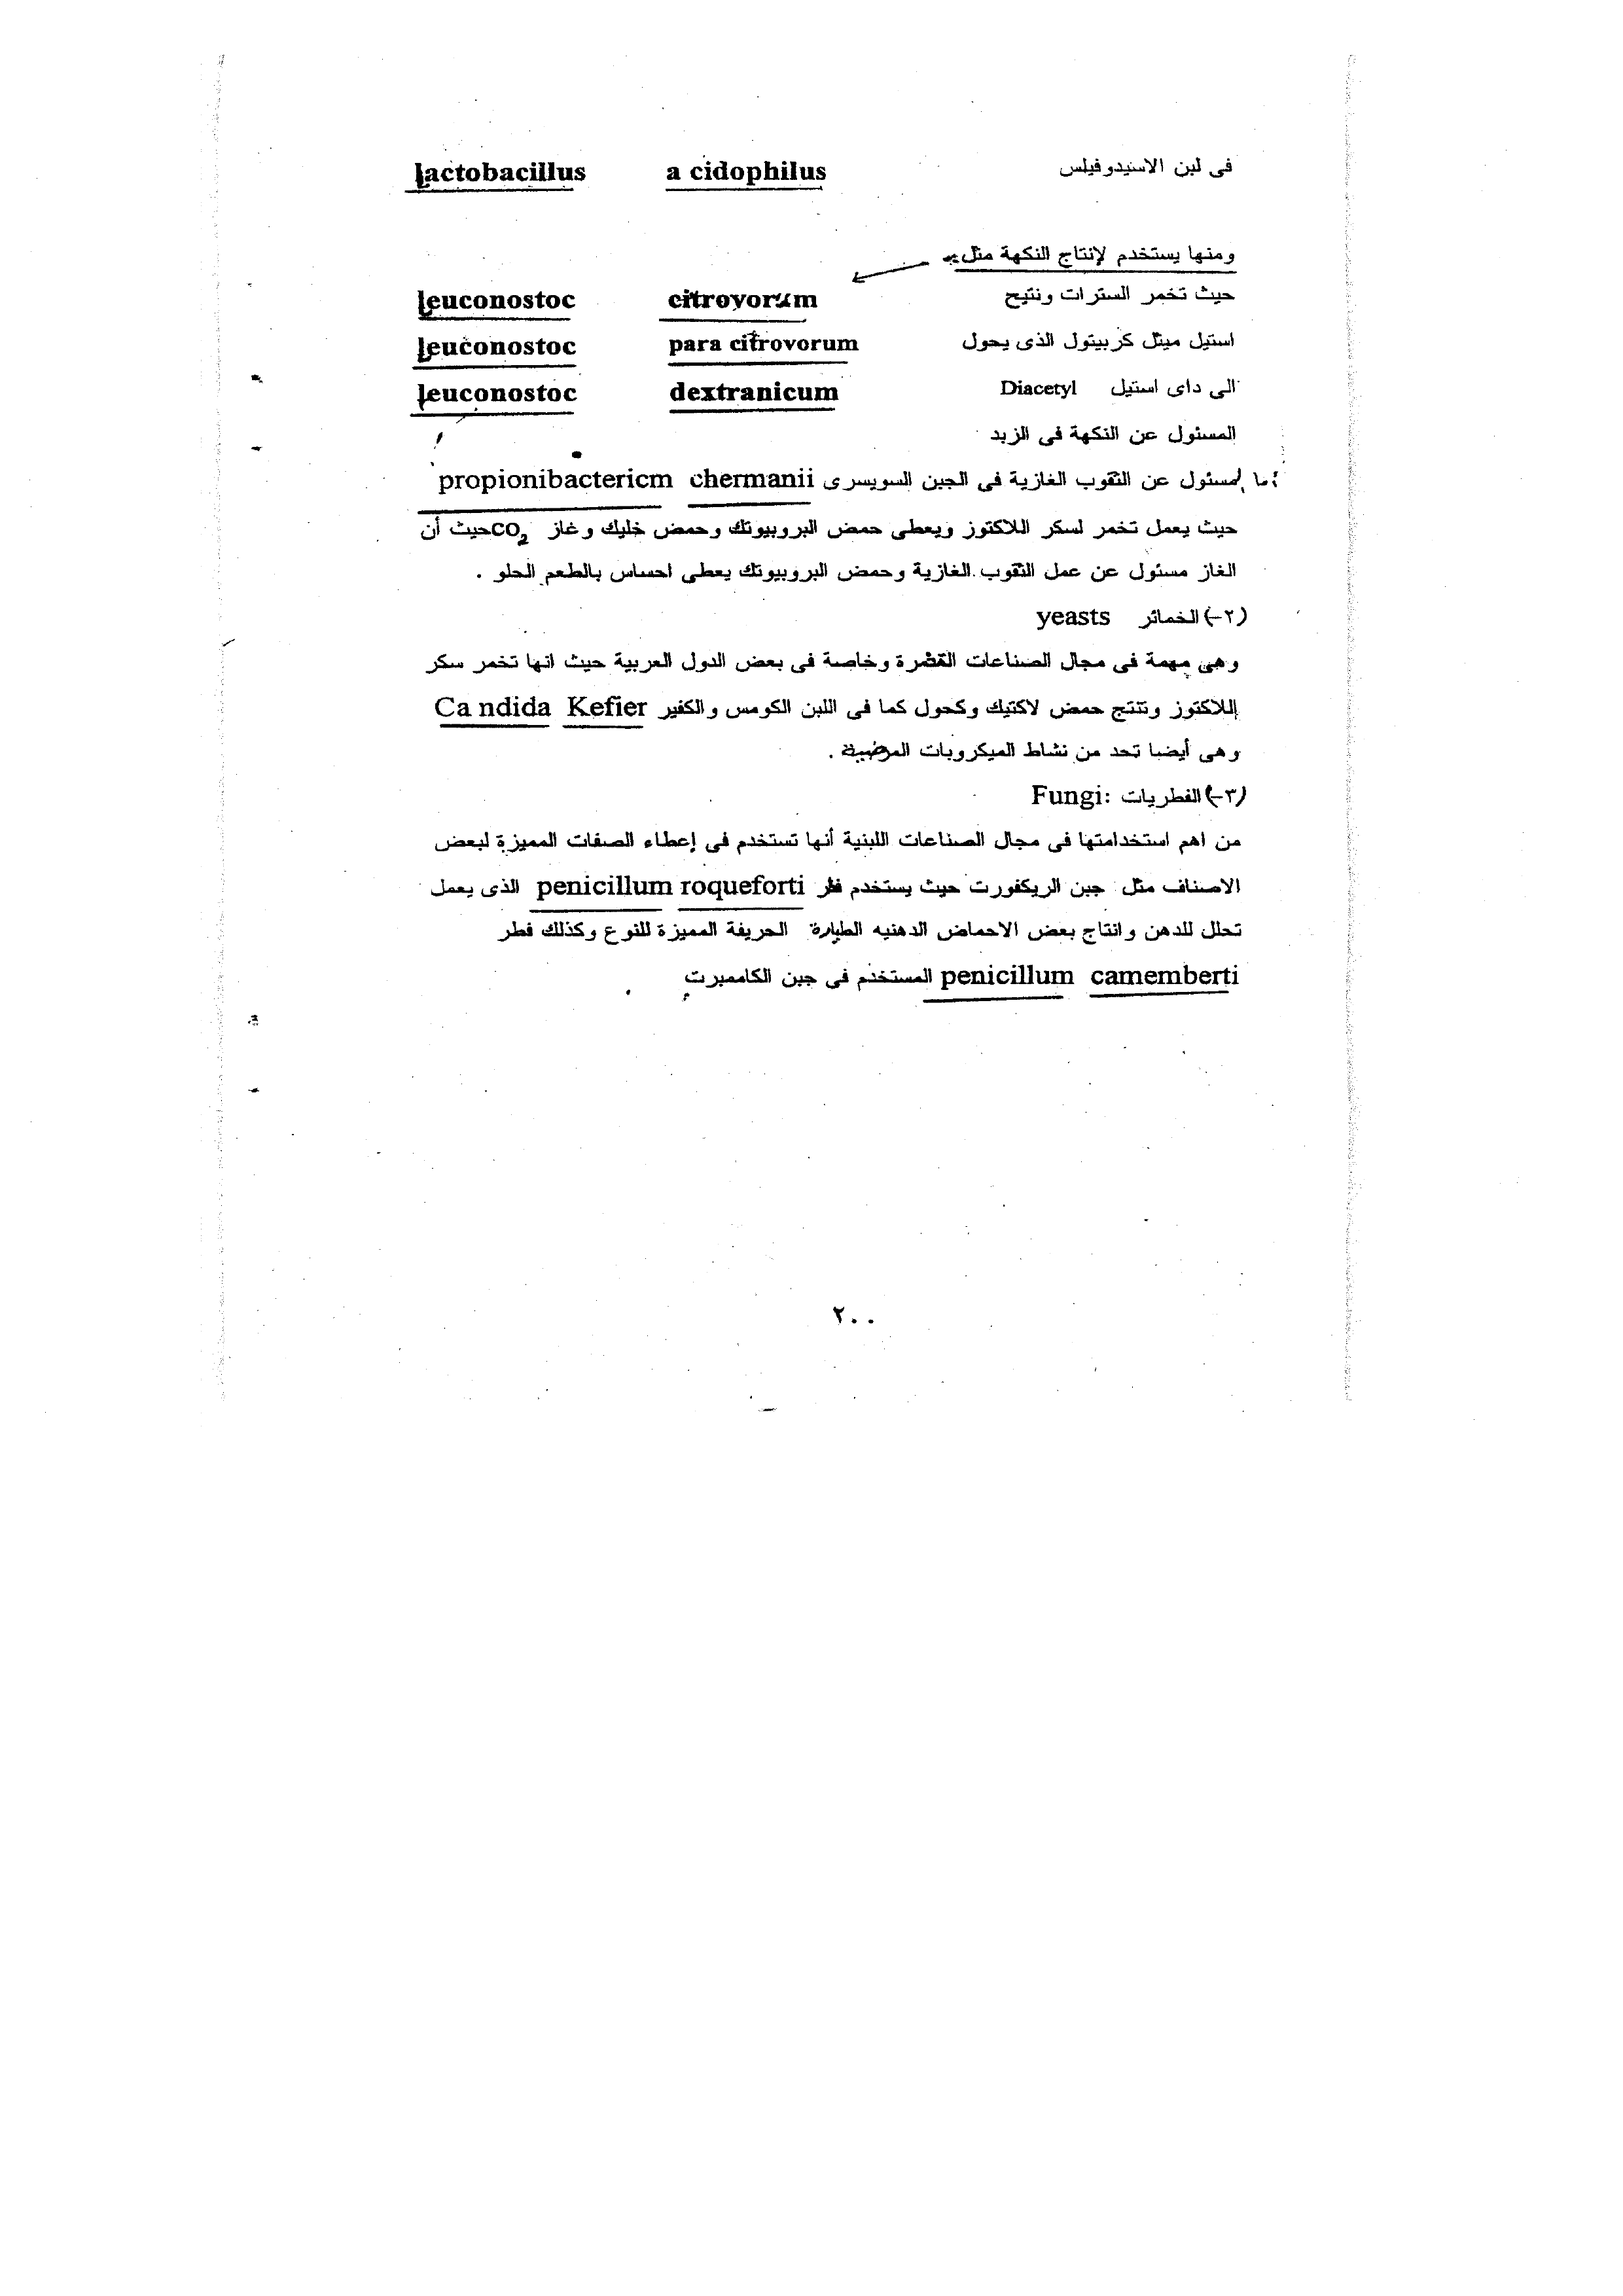 فى لبن الاسيدوفيلس a cidophilus lactobacillus
ومنها يستخدم لإنتاج النكهة مثل
حيث تخمر السترات ونتيح citrovorum leuconostoc
استيل ميثل كربيتول الذى يحول para citrovorum leuconostoc
الى داى استيل Diacetyl dextranicum leuconostoc
المسئول عن النكهة فى الزبد
أما المسئول عن الثقوب الغازية فى الجبن السويسرى propionibactericm chermanii
حيث يعمل تخمر لسكر اللاكتوز ويعطى حمض البروبيوتك وحمض خليك وغاز CO₂ حيث أن
الغاز مسئول عن عمل الثقوب الغازية وحمض البروبيوتك يعطى احساس بالطعم الحلو .
(٢-) الخمائر yeasts
وهى مهمة فى مجال الصناعات وخاصة فى بعض الدول العربية حيث انها تخمر سكر
اللاكتوز وتنتج حمض لاكتيك وكحول كما فى اللبن الكومس والكفير Ca ndida Kefier
وهى أيضا تحد من نشاط الميكروبات المرضية .
(٣-) الفطريات :Fungi
من اهم استخدامتها فى مجال الصناعات اللبنية أنها تستخدم فى إعطاء الصفات المميزة لبعض
الاصناف مثل جبن الريكفورت حيث يستخدم فطر penicillum roqueforti الذى يعمل
تحلل للدهن وانتاج بعض الاحماض الدهنيه الطيارة الحريفة المميزة للنوع وكذلك فطر
penicillum camemberti المستخدم فى جبن الكاممبرت
٢٠٠